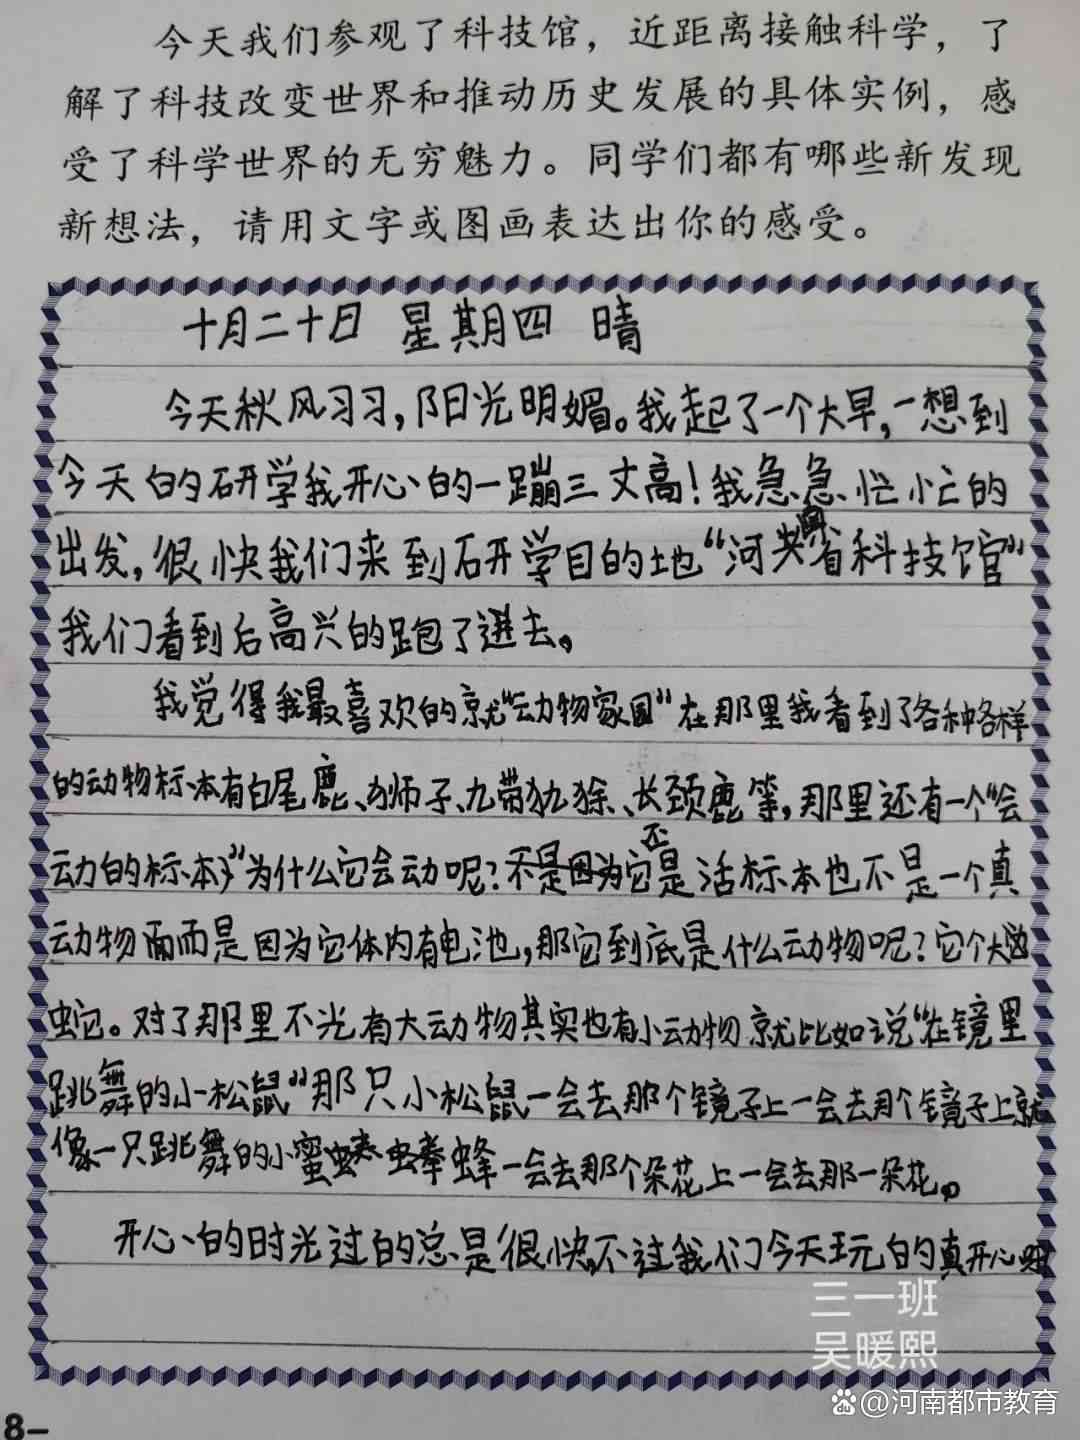 今天我们参观了科技馆，近距离接触科学，了
解了科技改变世界和推动历史发展的具体实例，感
受了科学世界的无穷魅力。同学们都有哪些新发现
新想法，请用文字或图画表达出你的感受。
十月二十日 星期四 晴
今天秋风习习，阳光明媚。我起了一个大早，一想到
今天的研学我开心的一蹦三丈高！我急急忙忙的
出发，很快我们来到研学目的地“河南省科技馆”
我们看到后高兴的跑了进去。
我觉得我最喜欢的就“动物家园”在那里我看到了各种各样
的动物标本有白尾鹿、狮子、九带犰狳、长颈鹿等，那里还有一个“会
动的标本”为什么它会动呢？不是因为它否是活标本也不是一个真
动物而而是因为它体内有电池，那它到底是什么动物呢？它个大
蛇。对了那里不光有大动物其实也有小动物就比如说“在镜里
跳舞的小松鼠”那只小松鼠一会去那个镜子上一会去那个镜子上就
像一只跳舞的小蜜蜂一会去那个朵花上一会去那一朵花。
开心的时光过的总是很快，不过我们今天玩的真开心呀
三一班
吴暖熙
@河南都市教育
8-